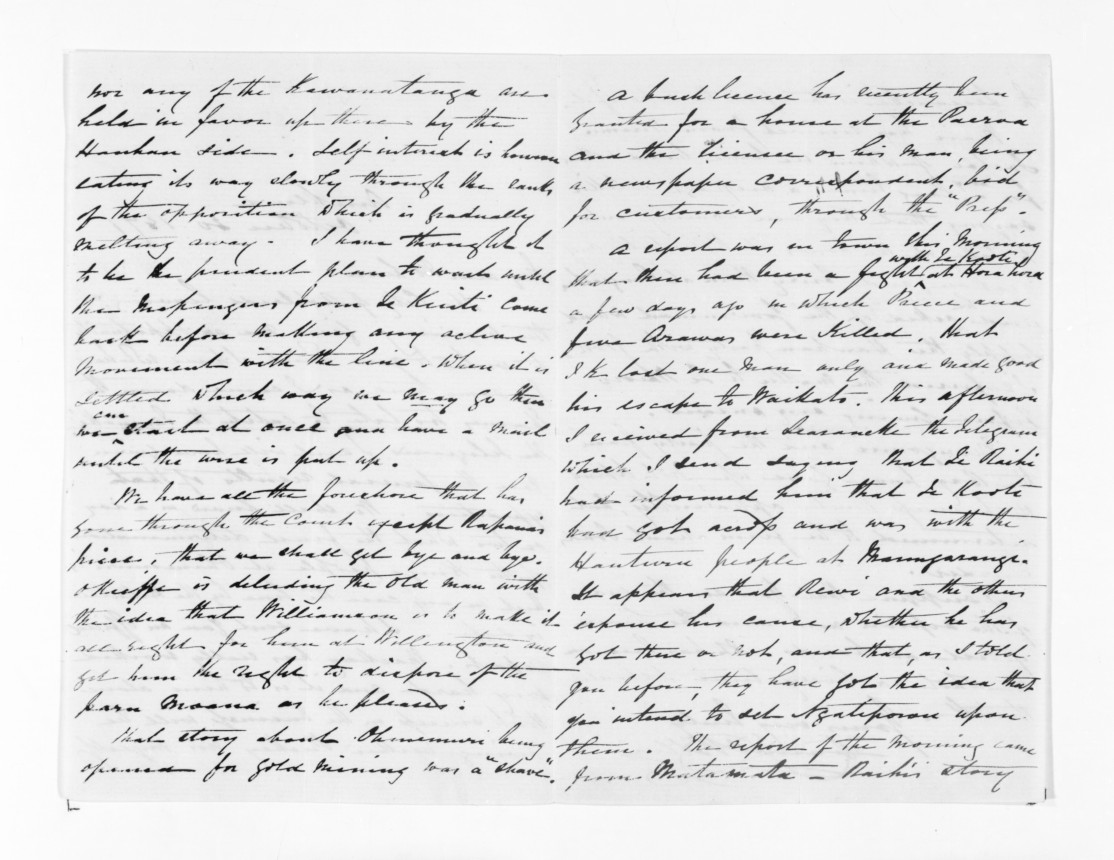 nor any of the Kawanatanga are
held in favor up there by the
Hauhau side. Self interest is however
eating its way slowly through the ranks
of the opposition which is gradually
melting away. I have thought it
to be the prudent plan to wait until
the Messengers from Te Kuiti come
back before making any active
movement with the line. When it is
settled which way we may go then
we can start at once and have a mail
until the wire is put up.
We have all the foreshore that has
gone through the Court except Rapana's
piece, that we shall get bye and bye.
O'Keeffe is deluding the old man with
the idea that Williamson is to make it
all right for him at Wellington and
get him the right to dispose of the
paru Moana as he pleases.
That story about Ohinemuri being
opened for gold mining was a "shave".
A bush licence has recently been
granted for a house at the Paeroa
and the licensee or his man, being
a newspaper correspondent, bid
for customers, through the "Press".
A report was in town this Morning
that there had been a fight with Te Kooti at Horahora
a few days ago in which Preece and
five Arawas were Killed. That
T.K. lost one man only and made good
his escape to Waikato. This afternoon
I received from Searancke the telegram
which I send saying that Te Raihi
had informed him that Te Kooti
had got across and was with the
Hauturu people at Maungarangi.
It appears that Rewi and the others
espouse his cause, whether he has
got there or not, and that, as I told
you before, they have got the idea that
you intend to set Ngatiporou upon
them. The report of the morning came
from Matamata – Raihi's story